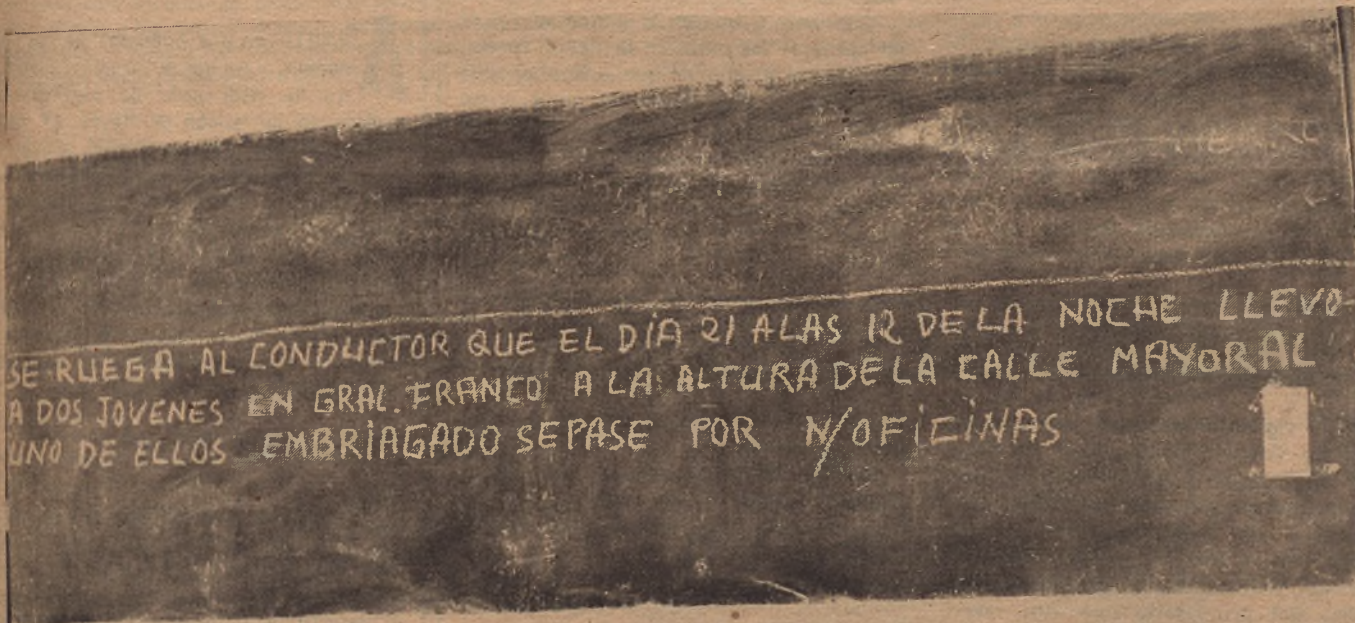 SE RUEGA AL CONDUCTOR QUE EL DÍA 21 ALAS 12 DE LA NOCHE LLEVO
A DOS JOVENES EN GRAL. FRANCO A LA ALTURA DE LA CALLE MAYORAL
UNO DE ELLOS EMBRIAGADO SEPASE POR N/OFICINAS